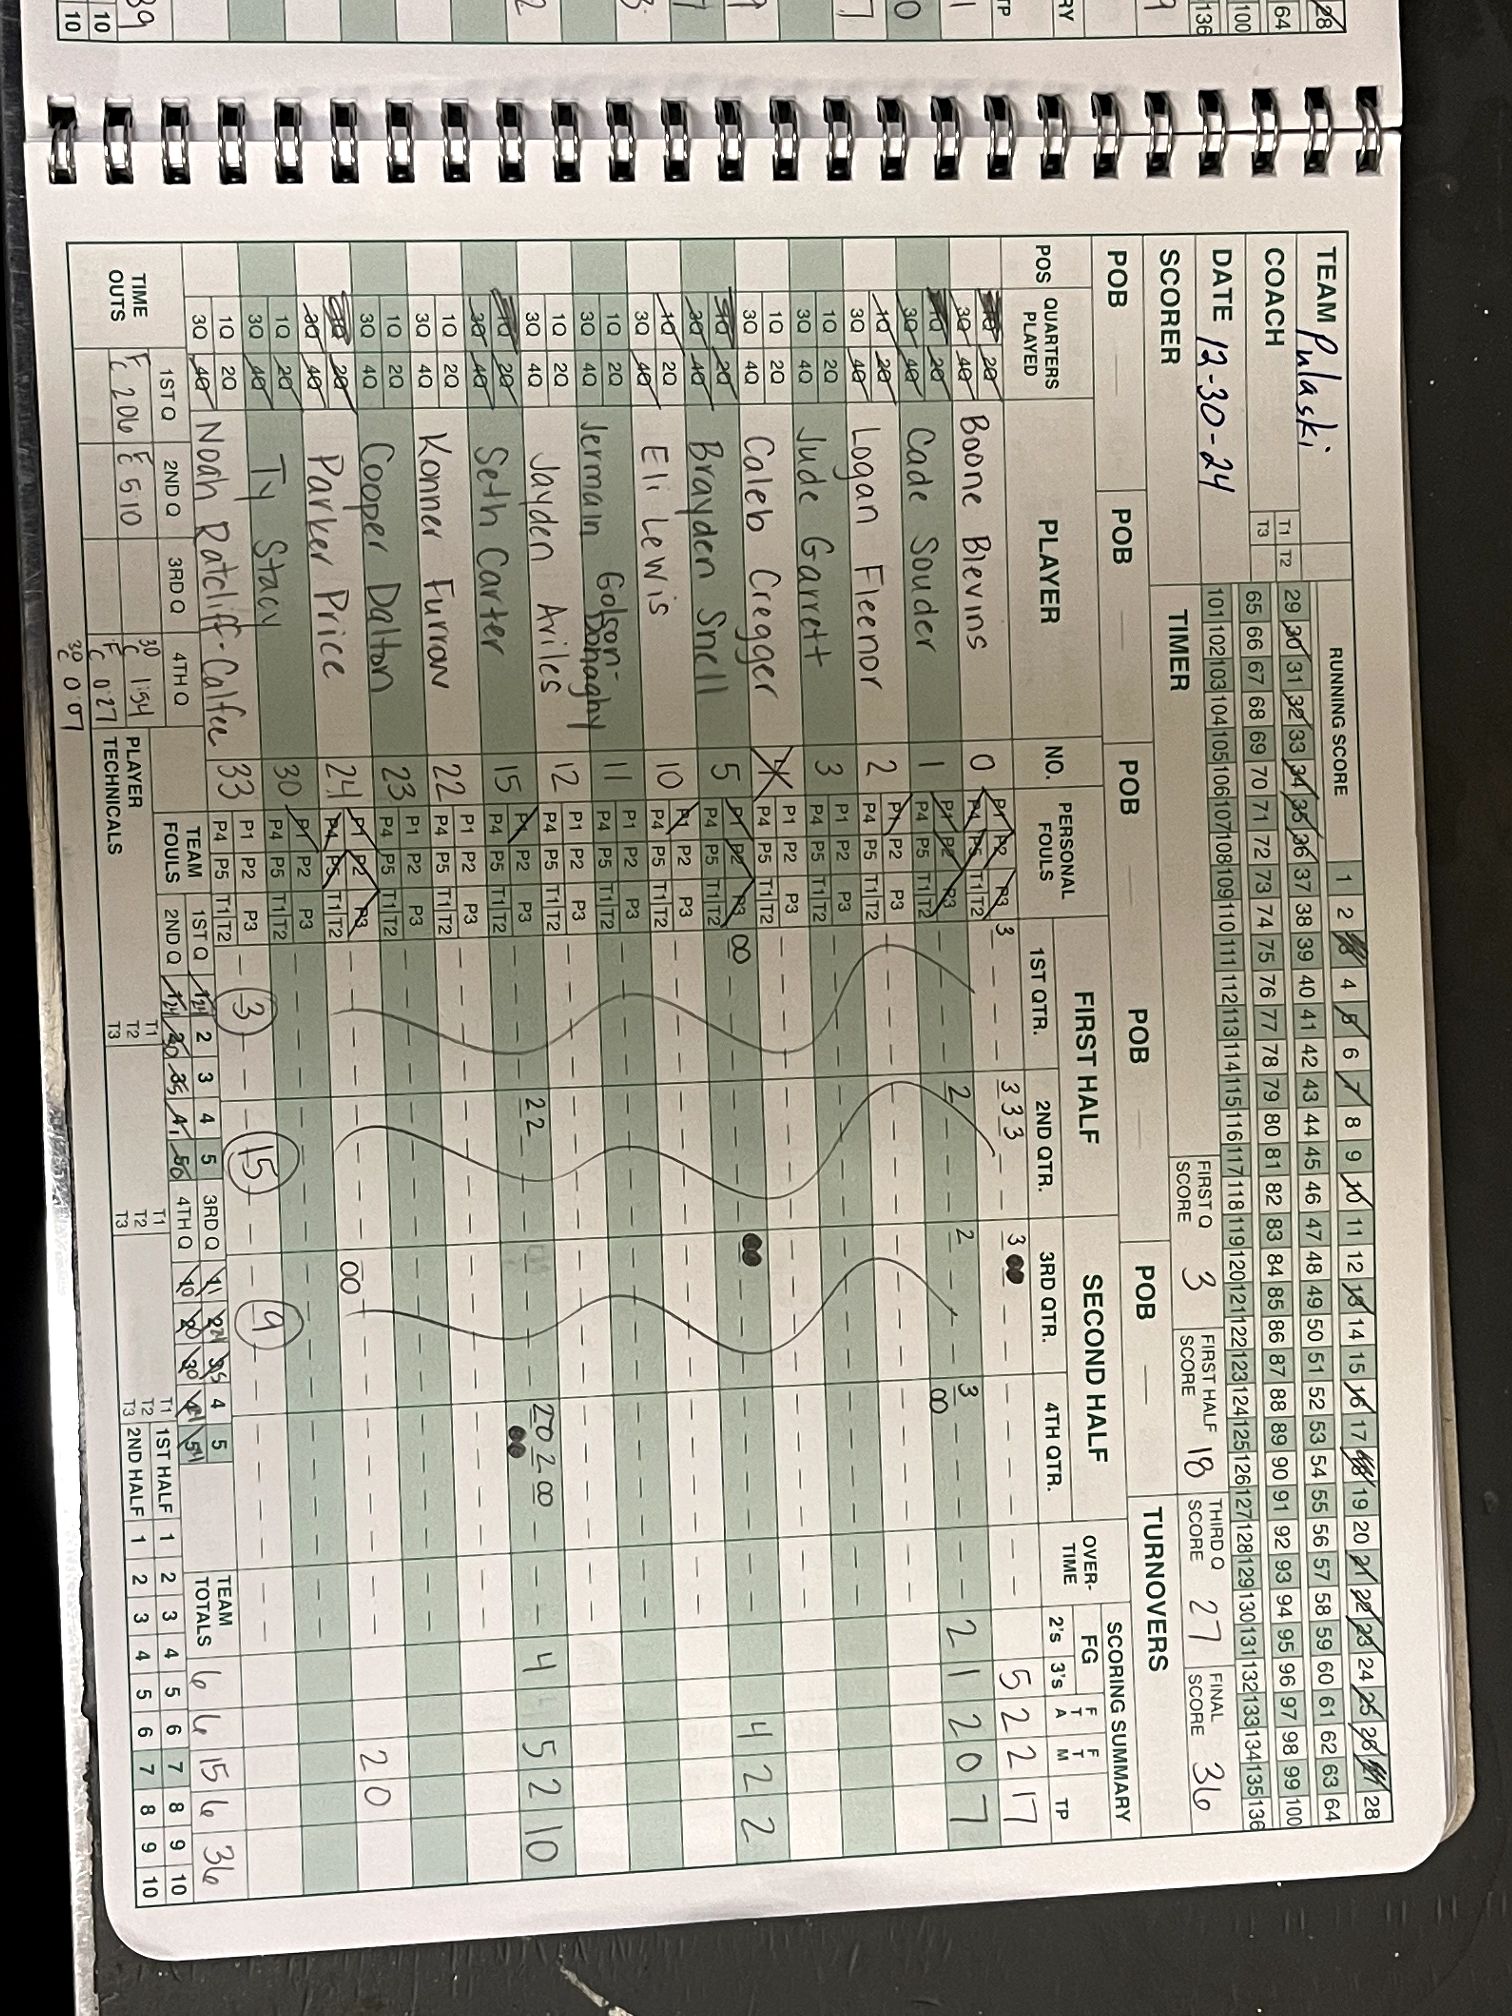 TEAM Pulaski
COACH
T1 T2
T3
DATE 12-30-24
RUNNING SCORE
1 2 3 4 5 6 7 8 9 10 11 12 13 14 15 16 17 18 19 20 21 22 23 24 25 26 27 28
29 30 31 32 33 34 35 36 37 38 39 40 41 42 43 44 45 46 47 48 49 50 51 52 53 54 55 56 57 58 59 60 61 62 63 64
65 66 67 68 69 70 71 72 73 74 75 76 77 78 79 80 81 82 83 84 85 86 87 88 89 90 91 92 93 94 95 96 97 98 99 100
101 102 103 104 105 106 107 108 109 110 111 112 113 114 115 116 117 118 119 120 121 122 123 124 125 126 127 128 129 130 131 132 133 134 135 136
SCORER
TIMER
FIRST Q SCORE 3
FIRST HALF SCORE 18
THIRD Q SCORE 27
FINAL SCORE 36
POB POB POB POB POB TURNOVERS
POS QUARTERS PLAYED PLAYER NO. PERSONAL FOULS FIRST HALF 1ST QTR. 2ND QTR. SECOND HALF 3RD QTR. 4TH QTR. OVER-TIME SCORING SUMMARY FG 2's 3's FTA FTM TP
1Q 2Q 3Q 4Q Boone Blevins 0 P1 P2 P3 P4 P5 T1 T2 3 3 3 3 3 5 2 2 17
1Q 2Q 3Q 4Q Cade Souder 1 P1 P2 P3 P4 P5 T1 T2 2 2 3 00 2 1 2 0 7
1Q 2Q 3Q 4Q Logan Fleenor 2 P1 P2 P3 P4 P5 T1 T2
1Q 2Q 3Q 4Q Jude Garrett 3 P1 P2 P3 P4 P5 T1 T2
1Q 2Q 3Q 4Q Caleb Cregger P1 P2 P3 P4 P5 T1 T2
1Q 2Q 3Q 4Q Brayden Snell 5 P1 P2 P3 P4 P5 T1 T2 00 4 2 2
1Q 2Q 3Q 4Q Eli Lewis 10 P1 P2 P3 P4 P5 T1 T2
1Q 2Q 3Q 4Q Jermain Golson-Donaghy 11 P1 P2 P3 P4 P5 T1 T2
1Q 2Q 3Q 4Q Jayden Ariles 12 P1 P2 P3 P4 P5 T1 T2
1Q 2Q 3Q 4Q Seth Carter 15 P1 P2 P3 P4 P5 T1 T2 2 2 2 0 2 00 4 5 2 10
1Q 2Q 3Q 4Q Konner Furrow 22 P1 P2 P3 P4 P5 T1 T2
1Q 2Q 3Q 4Q Cooper Dalton 23 P1 P2 P3 P4 P5 T1 T2
1Q 2Q 3Q 4Q Parker Price 24 P1 P2 P3 P4 P5 T1 T2 00 2 0
1Q 2Q 3Q 4Q Ty Stacy 30 P1 P2 P3 P4 P5 T1 T2
1Q 2Q 3Q 4Q Noah Ratcliff-Calfee 33 P1 P2 P3 P4 P5 T1 T2 3 15 9
TIME OUTS 1ST Q 2ND Q 3RD Q 4TH Q
F 206 F 510 30 C 1:54
F C 0:27
30 C 0:07
TEAM FOULS 1ST Q 2 3 4 5 3RD Q 4 5
2ND Q 4TH Q
TEAM TOTALS 6 6 15 6 36
PLAYER TECHNICALS T1 T2 T3 T1 T2 T3 T1 T2 T3
1ST HALF 1 2 3 4 5 6 7 8 9 10
2ND HALF 1 2 3 4 5 6 7 8 9 10